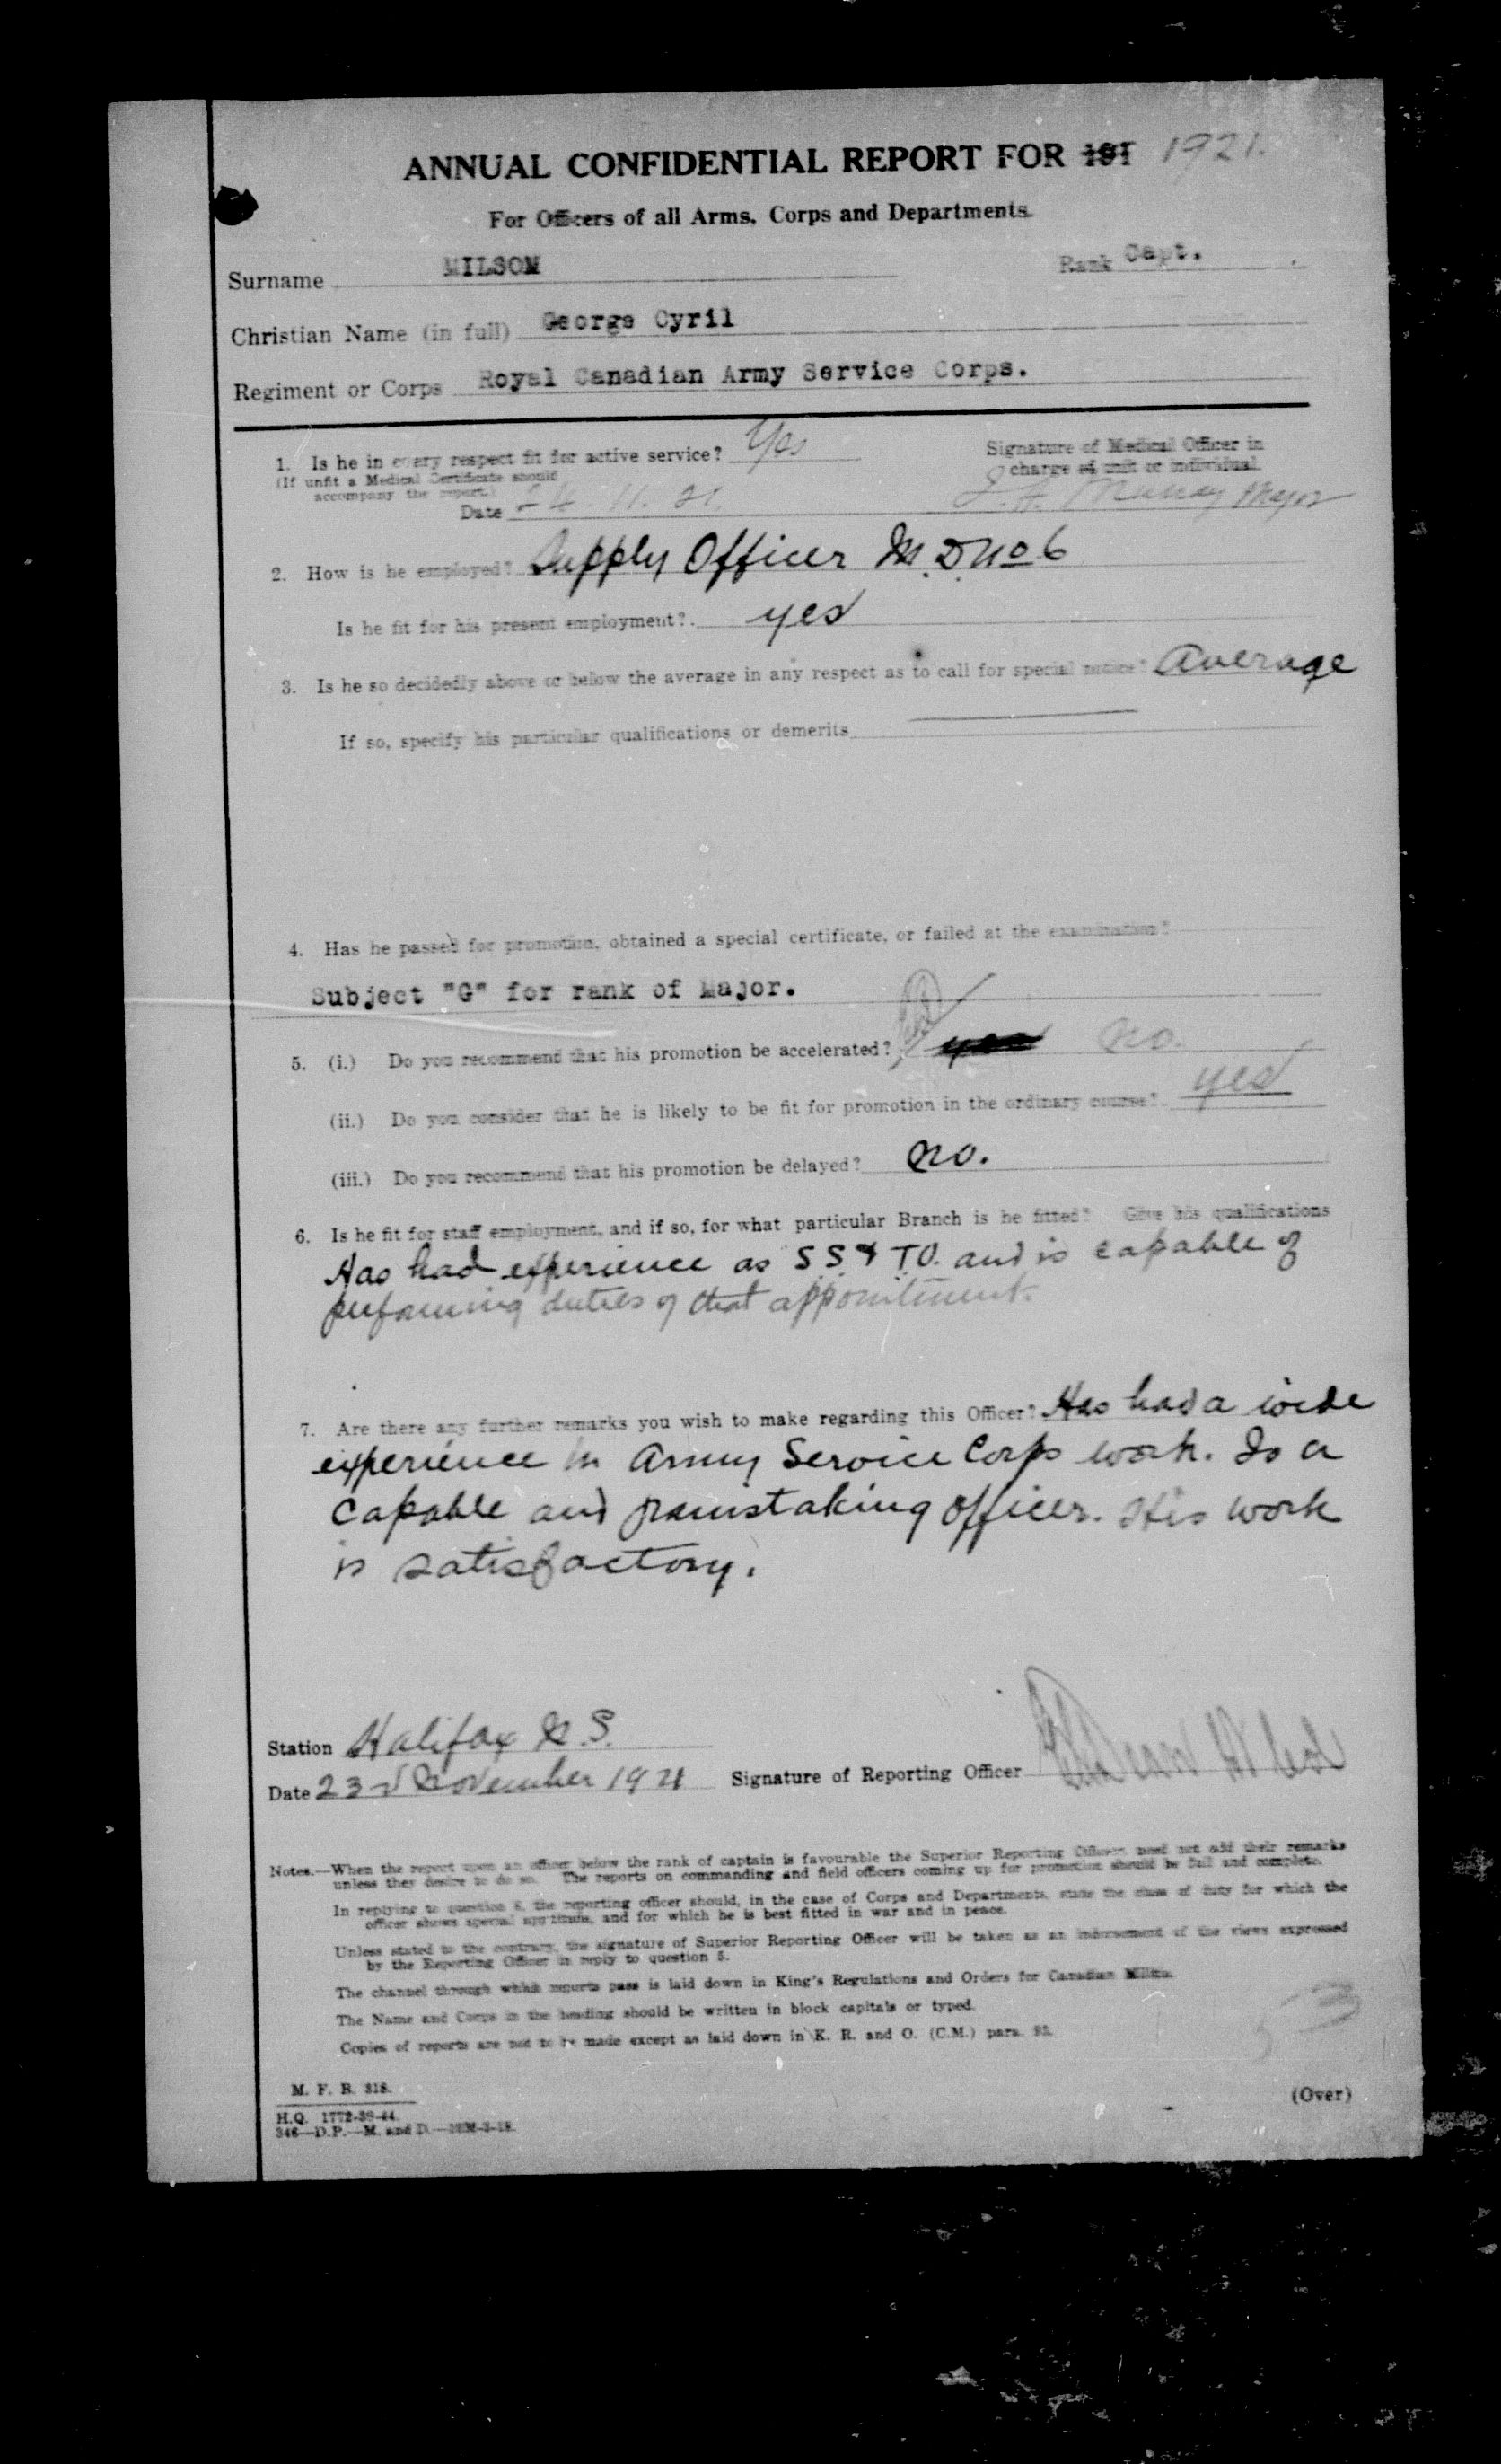 ANNUAL CONFIDENTIAL REPORT FOR 191 1921.
For Officers of all Arms, Corps and Departments.
Surname MILSOM Rank Capt.
Christian Name (in full) George Cyril
Regiment or Corps Royal Canadian Army Service Corps.
1. Is he in every respect fit for active service? Yes Signature of Medical Officer in
(If unfit a Medical Certificate should charge of unit or individual.
accompany the report.)
Date 11. 21. Murray Major
2. How is he employed? Supply Officer M.D. No 6
Is he fit for his present employment? yes
3. Is he so decidedly above or below the average in any respect as to call for special notice? Average
If so, specify his particular qualifications or demerits
4. Has he passed for promotion, obtained a special certificate, or failed at the examination?
Subject "G" for rank of Major.
5. (i.) Do you recommend that his promotion be accelerated? yes no.
(ii.) Do you consider that he is likely to be fit for promotion in the ordinary course? yes
(iii.) Do you recommend that his promotion be delayed? no.
6. Is he fit for staff employment, and if so, for what particular Branch is he fitted? Give his qualifications
Has had experience as S.S. & T.O. and is capable of
performing duties of that appointment.
7. Are there any further remarks you wish to make regarding this Officer? Has had a wide
experience in Army Service Corps work. Is a
capable and painstaking officer. His work
is satisfactory.
Station Halifax N.S.
Date 23rd November 1921 Signature of Reporting Officer
Notes.—When the report upon an officer below the rank of captain is favourable the Superior Reporting Officers need not add their remarks
unless they desire to do so. The reports on commanding and field officers coming up for promotion should be full and complete.
In replying to question 6, the reporting officer should, in the case of Corps and Departments, state the class of duty for which the
officer shows special aptitude, and for which he is best fitted in war and in peace.
Unless stated to the contrary, the signature of Superior Reporting Officer will be taken as an indorsement of the views expressed
by the Reporting Officer in reply to question 5.
The channel through which reports pass is laid down in King's Regulations and Orders for Canadian Militia.
The Name and Corps in the heading should be written in block capitals or typed.
Copies of reports are not to be made except as laid down in K. R. and O. (C.M.) para. 95.
M. F. B. 318.
H.Q. 1772-39-44.
346—D.P.—M. and D.
(Over)